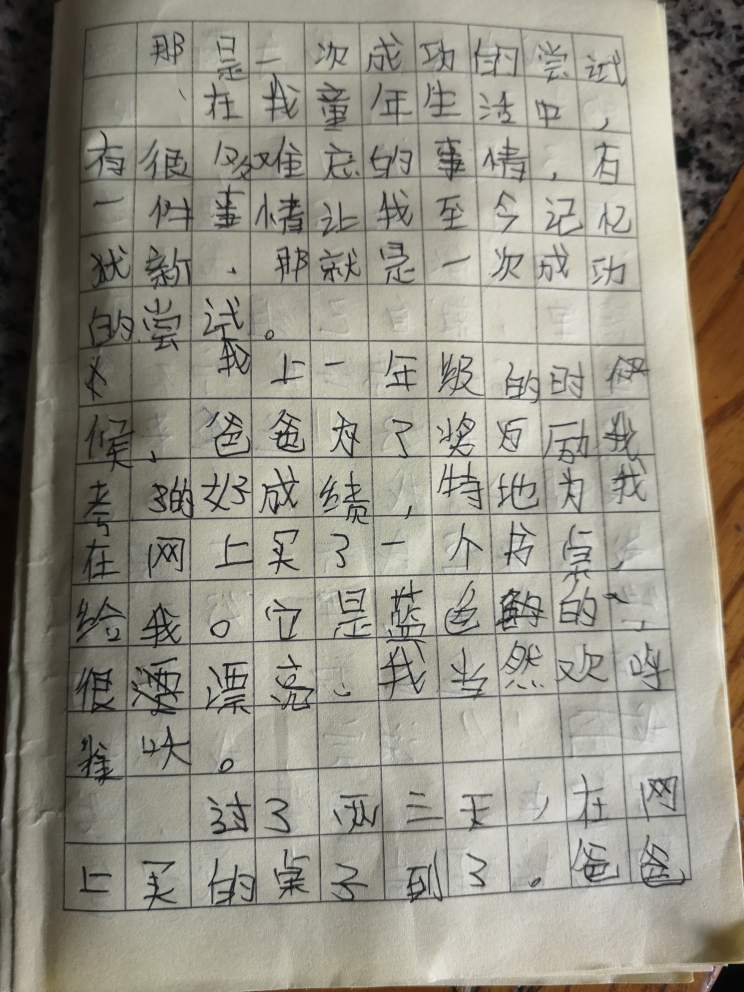 那是一次成功的尝试
、在我童年生活中，
有很多难忘的事情，有
一件事情让我至今记忆
犹新，那就是一次成功
的尝试。
我上一年级的时
候，爸爸为了奖励我
考了的好成绩，特地为我
在网上买了一个书桌，
给我。它是蓝色的，
很漂亮、我当然欢呼
雀跃。
过了两三天，在网
上买的桌子到了。爸爸